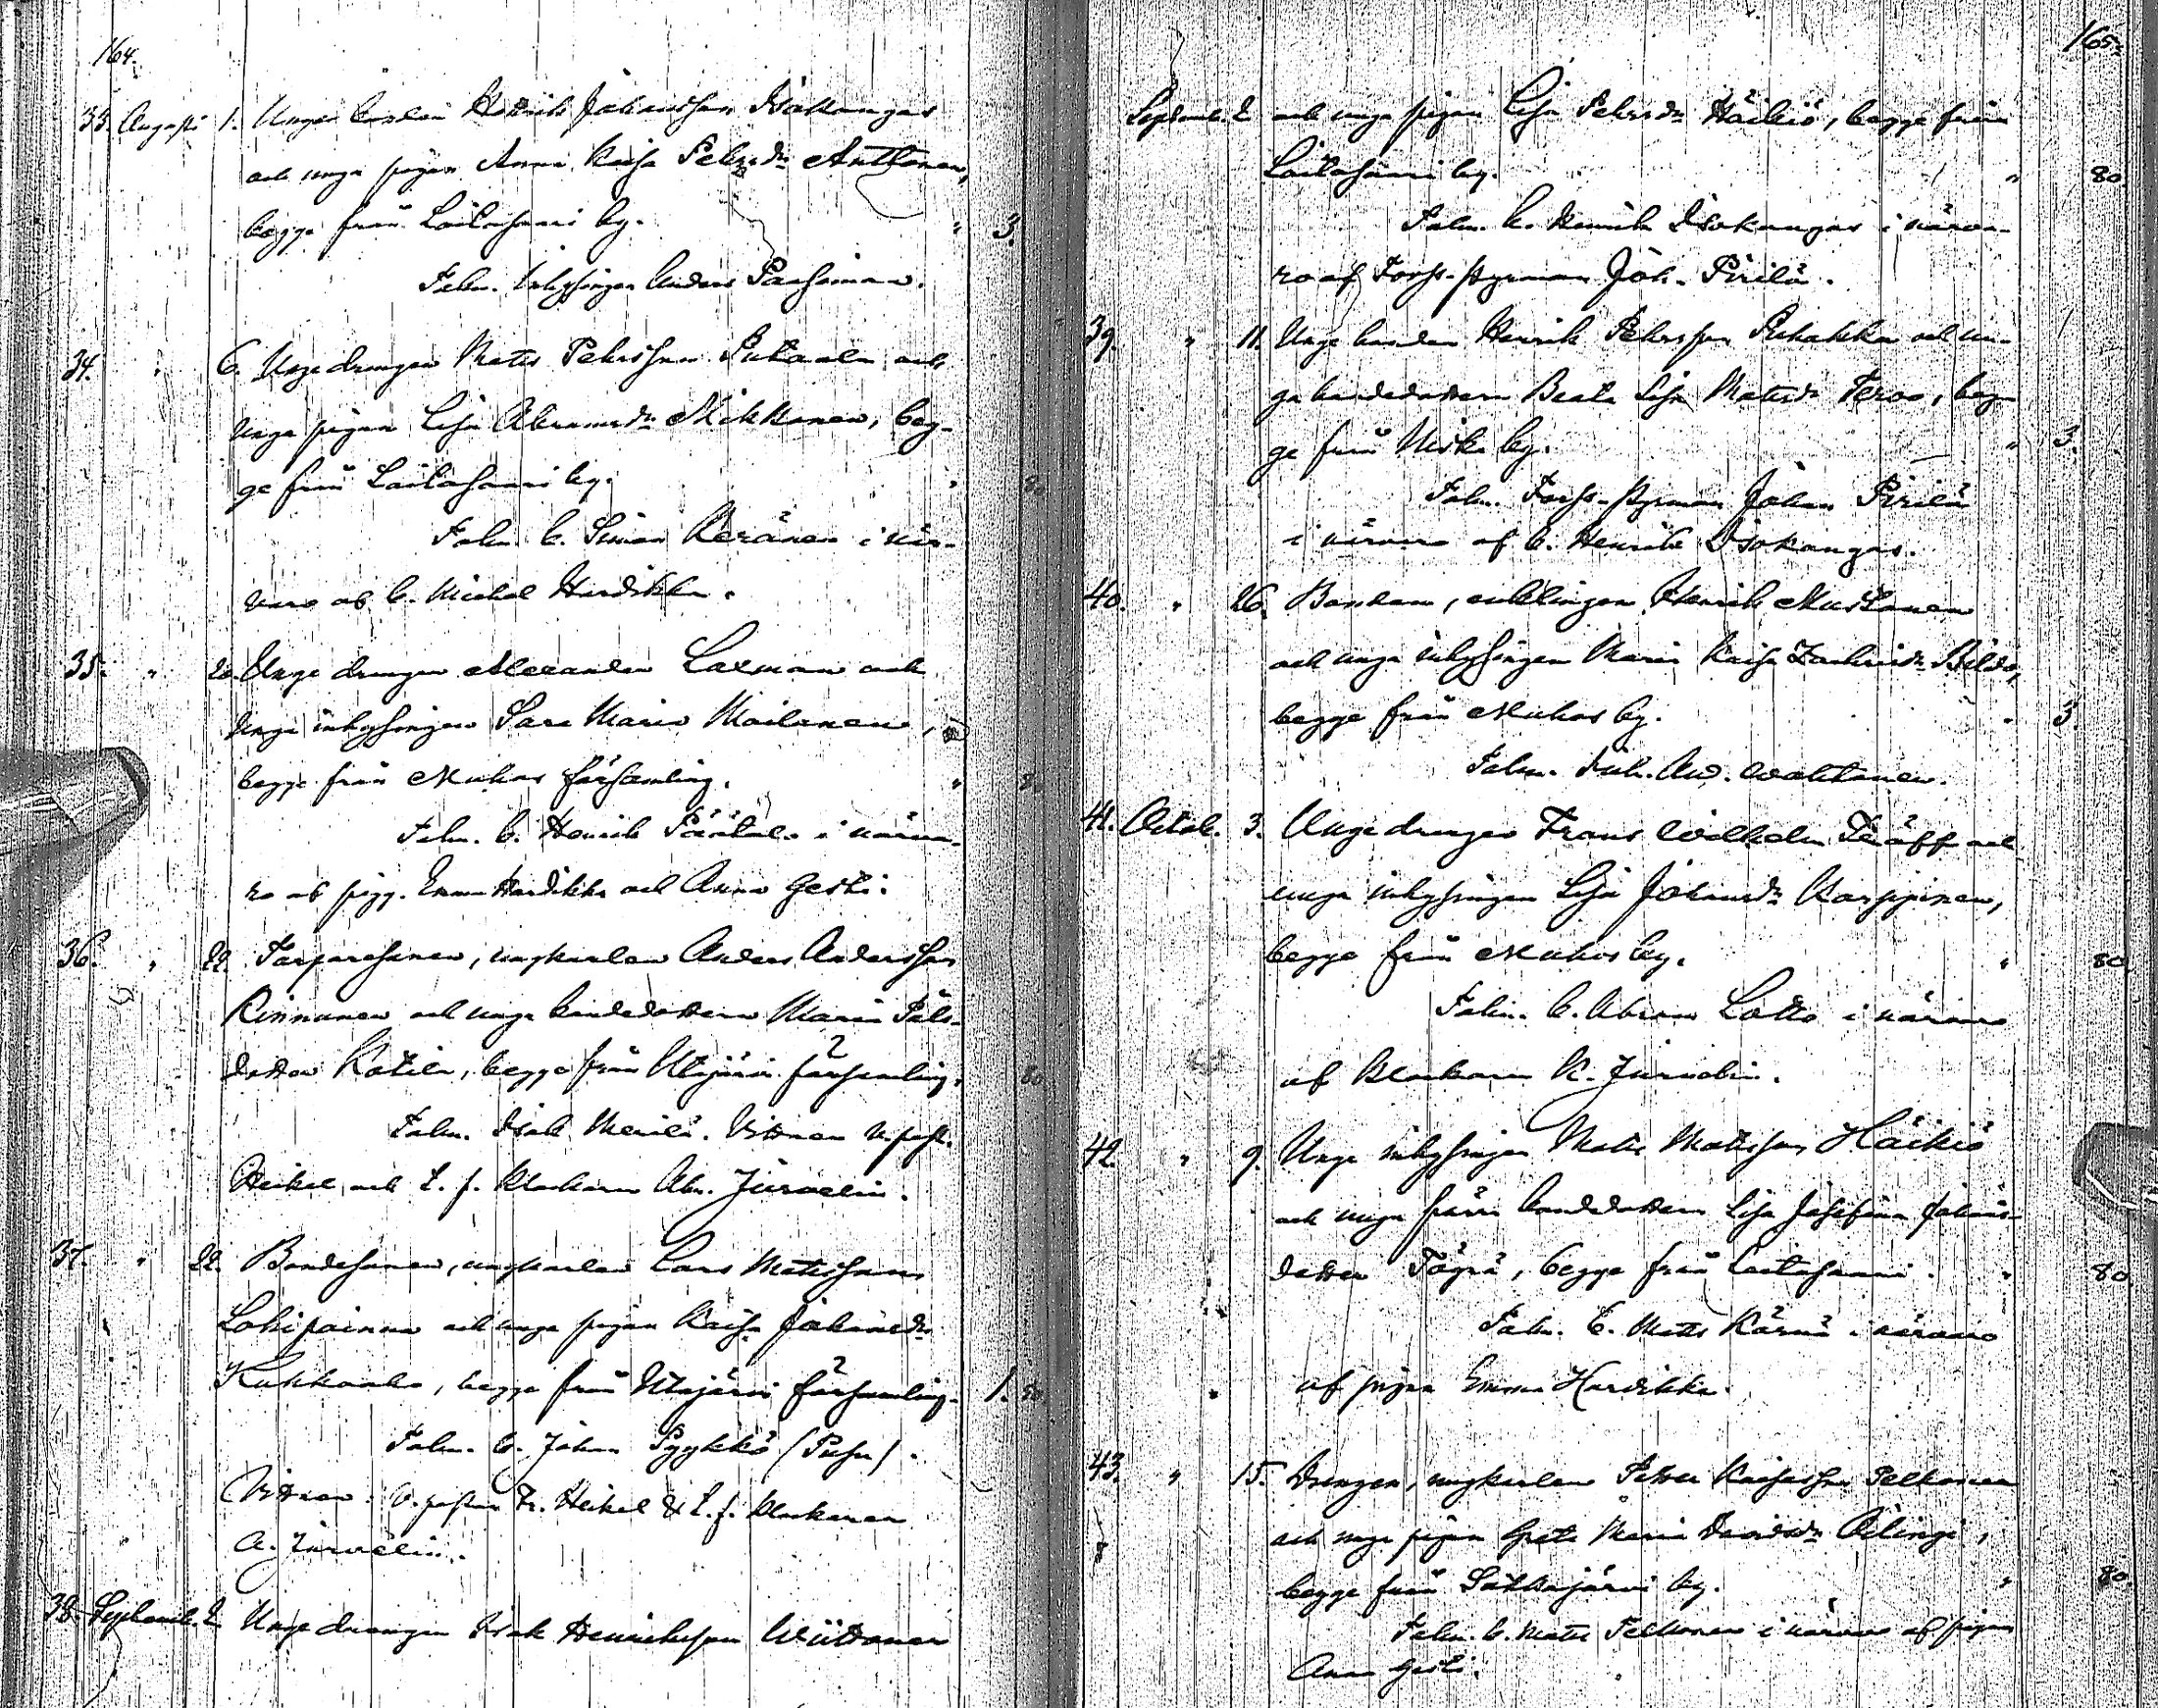 164.
33. Augusti 1. Unge bonden Henrik Johansson Isokangas
och unga pigan Anna Kaisa Pehrsdr Anttonen,
begge från Laitasaari by. " 3.
Talm. inhysingen Anders Parhinen.
34. " 6. Unge drengen Matts Pehrsson Putaala och
unga pigan Lisa Abramsdr Mikkonen, beg-
ge från Laitasaari by. " 80
Talm. b. Simon Keränen i när-
varo af b. Michel Hardikka.
35. " 20. Unge drengen Alexander Laxman och
unga inhysingen Sara Maria Moilanen,
begge från Muhos församling. " 80
Talm. b. Henrik Päätalo i närva-
ro af pigg. Emma Hardikka och Anna Gesti.
36. " 22. Torparesonen, ungkarlen Anders Andersson
Kinnunen och unga bondedottern Maria Påls-
dotter Kotila, begge från Utajärvi församling. 80
Talm. Isak Merilä. Vittnen v. past.
Heikel och t. f. klockaren Abr. Järvelin.
37. " 22. Bondesonen, ungkarlen Lars Mattsson
Lohipainne och unga pigan Kaisa Johansdr
Kukkohla, begge från Utajärvi församling. 1. 50
Talm. b. Johan Pyykkö (Puhn).
Vittnen: V. pastor Fr. Heikel & t. f. klockaren
A. Järvelin.
38. Septemb. 2. Unge drengen Isak Henriksson Wiittanen
165.
Septemb. 2. och unga pigan Lisa Pehrsdr Häikiö, begge från
Laitasaari by. " 80
Talm. b. Henrik Isokangas i närva-
ro af Forss-styrman Joh. Pirilä.
39. " 11. Unge bonden Henrik Pehrsson Puhakka och un-
ga bondedottern Beata Lisa Mattsdr Tervo, beg-
ge från Niska by. " 3.
Talm. Forss-styrman Johan Pirilä
i närvaro af b. Henrik Isokangas.
40. " 26. Bonden, enklingen Henrik Mustonen
och unga inhysingen Maria Kaisa Zachrisdr
begge från Muhos by. " 3
Talm. Joh. And. Wahtanen.
41. Octob. 3. Unge drengen Frans Wilhelm Träff och
unga inhysingen Lisa Johansdr Karppinen,
begge från Muhos by. " 80
Talm. b. Abram Lotto i närvaro
af klockaren K. Järvelin.
42. " 9. Unge inhysingen Matts Mattsson Häikiö
och unga förra bondedottern Lisa Josefina Johans-
dotter Töyrä, begge från Laitasaari. " 80
Talm. b. Matts Kärnä i närvaro
af pigan Emma Hardikka.
43. " 15. Drengen, ungkarlen Petter Kaisasson Pelkonen
och unga pigan Greta Maria Davidsdr Ålingi,
begge från Sotkajärvi by. " 80.
Talm. b. Matts Pelkonen i närvaro af pigan
Anna Gesti.